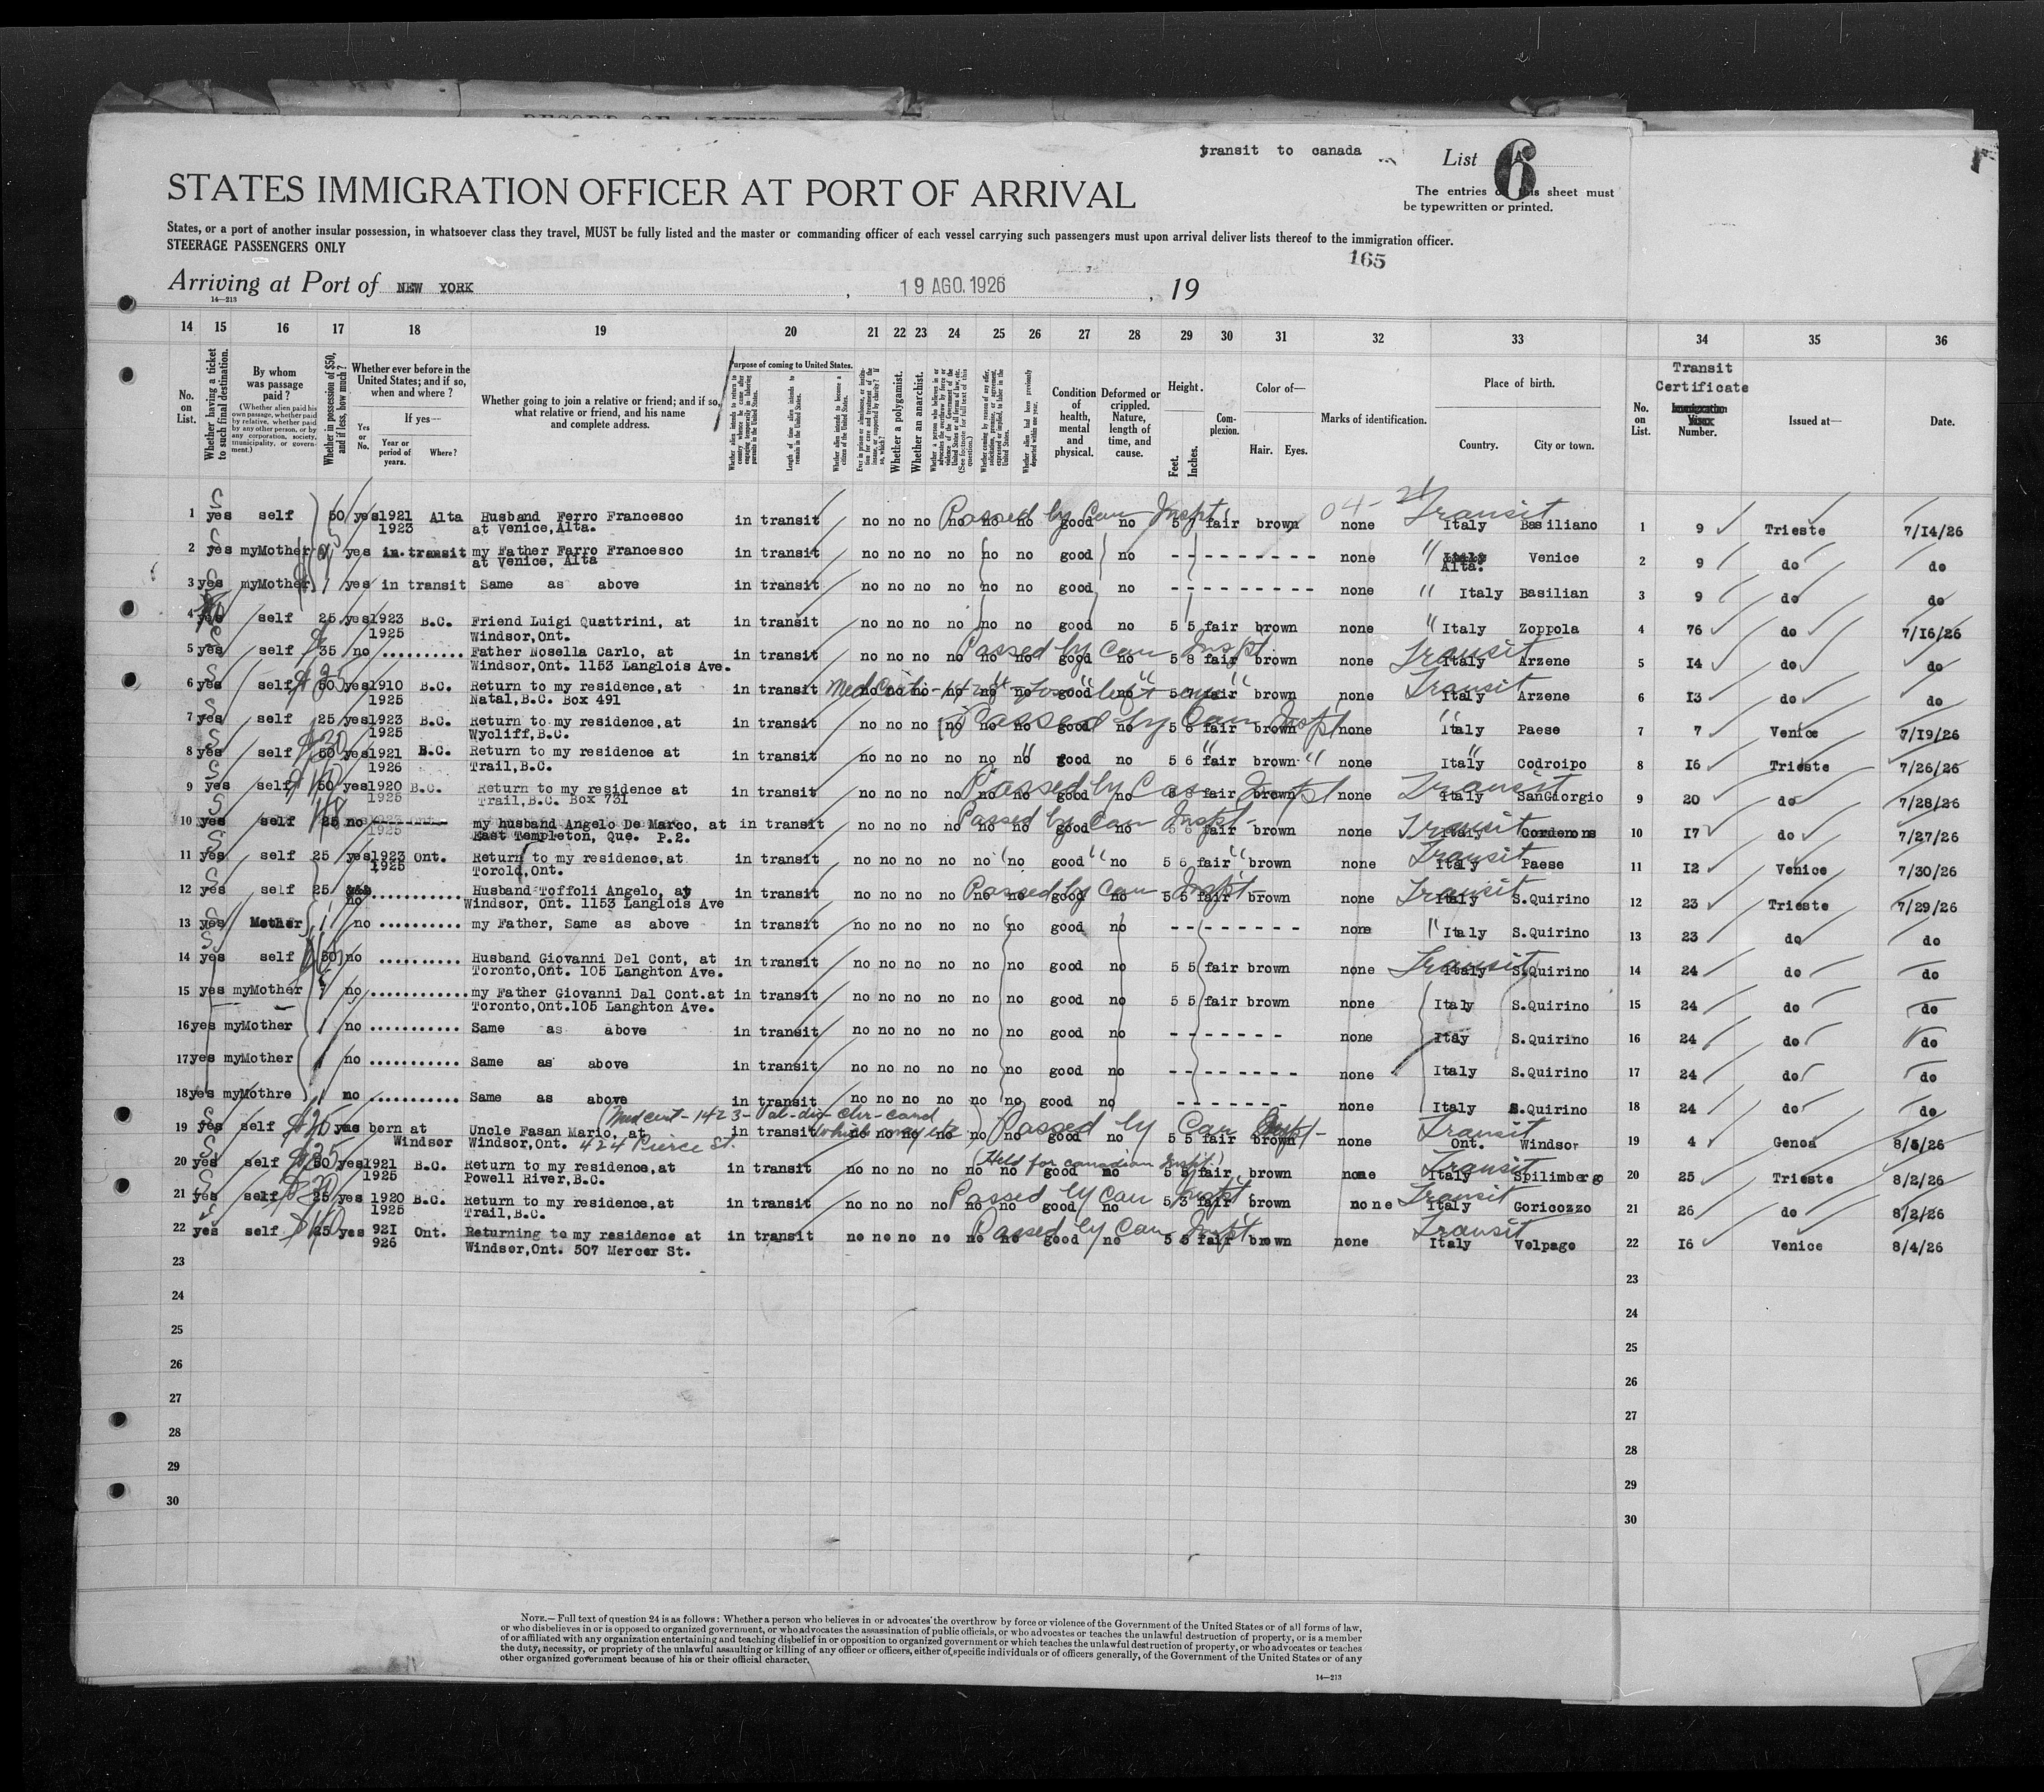 transit to canada
List 6
The entries on this sheet must
be typewritten or printed.
STATES IMMIGRATION OFFICER AT PORT OF ARRIVAL
States, or a port of another insular possession, in whatsoever class they travel, MUST be fully listed and the master or commanding officer of each vessel carrying such passengers must upon arrival deliver lists thereof to the immigration officer.
STEERAGE PASSENGERS ONLY
165
Arriving at Port of NEW YORK, 19 AGO. 1926, 19
14—213
14 15 16 17 18 19 20 21 22 23 24 25 26 27 28 29 30 31 32 33 34 35 36
No. on List.
Whether having a ticket to such final destination.
By whom was passage paid?
(Whether alien paid his own passage, whether paid by relative, whether paid by any other person, or by any corporation, society, municipality, or government.)
Whether in possession of $50, and if less, how much?
Whether ever before in the United States; and if so, when and where?
Yes or No.
If yes—
Year or period of years.
Where?
Whether going to join a relative or friend; and if so, what relative or friend, and his name and complete address.
Purpose of coming to United States.
Length of time alien intends to remain in the United States.
Whether alien intends to become a citizen of the United States.
Whether a polygamist.
Whether an anarchist.
Condition of health, mental and physical.
Deformed or crippled. Nature, length of time, and cause.
Height.
Feet. Inches.
Complexion.
Color of—
Hair. Eyes.
Marks of identification.
Place of birth.
Country. City or town.
No. on List.
Transit Certificate
Number.
Issued at—
Date.
1 yes self 50 yes 1921 1923 Alta Husband Ferro Francesco at Venice, Alta. in transit no no no no no no good no 5 fair brown none Italy Basiliano 1 9 Trieste 7/14/26
Passed by Can Inspt Transit
2 yes myMother yes in transit my Father Farro Francesco at Venice, Alta in transit no no no no no no good no - - - - - - - - - none " Italy Alta. Venice 2 9 do do
3 yes myMother 1 yes in transit Same as above in transit no no no no no no good no - - - - - - - - - none " Italy Basilian 3 9 do do
4 yes self 25 yes 1923 1925 B.C. Friend Luigi Quattrini, at Windsor,Ont. in transit no no no no no no good no 5 5 fair brown none " Italy Zoppola 4 76 do 7/16/26
5 yes self 35 no .......... Father Nosella Carlo, at Windsor,Ont. 1153 Langlois Ave. in transit no no no no no no good no 5 8 fair brown none Italy Arzene 5 14 do do
Passed by Can Inspt Transit
6 yes self 50 yes 1910 1925 B.C. Return to my residence,at Natal,B.C. Box 491 in transit no no no no no no good no 5 7 fair brown none Italy Arzene 6 13 do do
Transit
7 yes self 25 yes 1923 1925 B.C. Return to my residence,at Wycliff,B.C. in transit no no no no no no good no 5 6 fair brown none Italy Paese 7 7 Venice 7/19/26
Passed by Can Inspt "
8 yes self 50 yes 1921 1926 B.C. Return to my residence at Trail,B.C. in transit no no no no no no good no 5 6 fair brown none Italy Codroipo 8 16 Trieste 7/26/26
9 yes self 50 yes 1920 1925 B.C. Return to my residence at Trail,B.C. Box 731 in transit no no no no no no good no 5 fair brown none Italy SanGiorgio 9 20 do 7/28/26
Passed by Can Inspt Transit
10 yes self 25 no my husband Angelo De Marco, at East Templeton, Que. P.2. in transit no no no no no no good no 5 6 fair brown none Italy Cordenons 10 17 do 7/27/26
Passed by Can Inspt Transit
11 yes self 25 yes 1923 1925 Ont. Return to my residence,at Torold,Ont. in transit no no no no no no good no 5 6 fair brown none Italy Paese 11 12 Venice 7/30/26
Transit
12 yes self 25 no ............ Husband Toffoli Angelo, at Windsor, Ont. 1153 Langlois Ave in transit no no no no no no good no 5 5 fair brown none Italy S.Quirino 12 23 Trieste 7/29/26
Passed by Can Inspt Transit
13 yes Mother 1 no .......... my Father, Same as above in transit no no no no no no good no - - - - - - - - none " Italy S.Quirino 13 23 do do
14 yes self 50 no .......... Husband Giovanni Del Cont, at Toronto,Ont. 105 Langhton Ave. in transit no no no no no no good no 5 5 fair brown none Italy S.Quirino 14 24 do do
Transit
15 yes myMother no ............ my Father Giovanni Dal Cont.at Toronto,Ont.105 Langhton Ave. in transit no no no no no no good no 5 5 fair brown none Italy S.Quirino 15 24 do do
16 yes myMother 1 no ........... Same as above in transit no no no no no no good no - - - - - - - none Italy S.Quirino 16 24 do do
17 yes myMother 1 no ........... Same as above in transit no no no no no no good no - - - - - - - - none Italy S.Quirino 17 24 do do
18 yes myMothre 1 no ........... Same as above in transit no no no no no no good no - - - - - - - none Italy S.Quirino 18 24 do do
19 yes self $25 yes born at Windsor Uncle Fasan Mario, at Windsor,Ont. 424 Pierce St. in transit no no no no no no good no 5 5 fair brown none Ont. Windsor 19 4 Genoa 8/5/26
Passed by Can Inspt Transit
20 yes self 50 yes 1921 1925 B.C. Return to my residence,at Powell River,B.C. in transit no no no no no no good no 5 5 fair brown none Italy Spilimbergo 20 25 Trieste 8/2/26
(Held for canadian Inspt.) Transit
21 yes self 25 yes 1920 1925 B.C. Return to my residence,at Trail,B.C. in transit no no no no no no good no 5 3 fair brown none Italy Goricozzo 21 26 do 8/2/26
Passed by Can Inspt Transit
22 yes self 25 yes 921 926 Ont. Returning to my residence at Windsor,Ont. 507 Mercer St. in transit no no no no no no good no 5 fair brown none Italy Volpago 22 16 Venice 8/4/26
Passed by Can Inspt Transit
23 23
24 24
25 25
26 26
27 27
28 28
29 29
30 30
NOTE.—Full text of question 24 is as follows: Whether a person who believes in or advocates the overthrow by force or violence of the Government of the United States or of all forms of law,
or who disbelieves in or is opposed to organized government, or who advocates the assassination of public officials, or who advocates or teaches the unlawful destruction of property, or is a member
of or affiliated with any organization entertaining and teaching disbelief in or opposition to organized government or which teaches the unlawful destruction of property, or who advocates or teaches
the duty, necessity, or propriety of the unlawful assaulting or killing of any officer or officers, either of specific individuals or of officers generally, of the Government of the United States or of any
other organized government because of his or their official character.
14—213